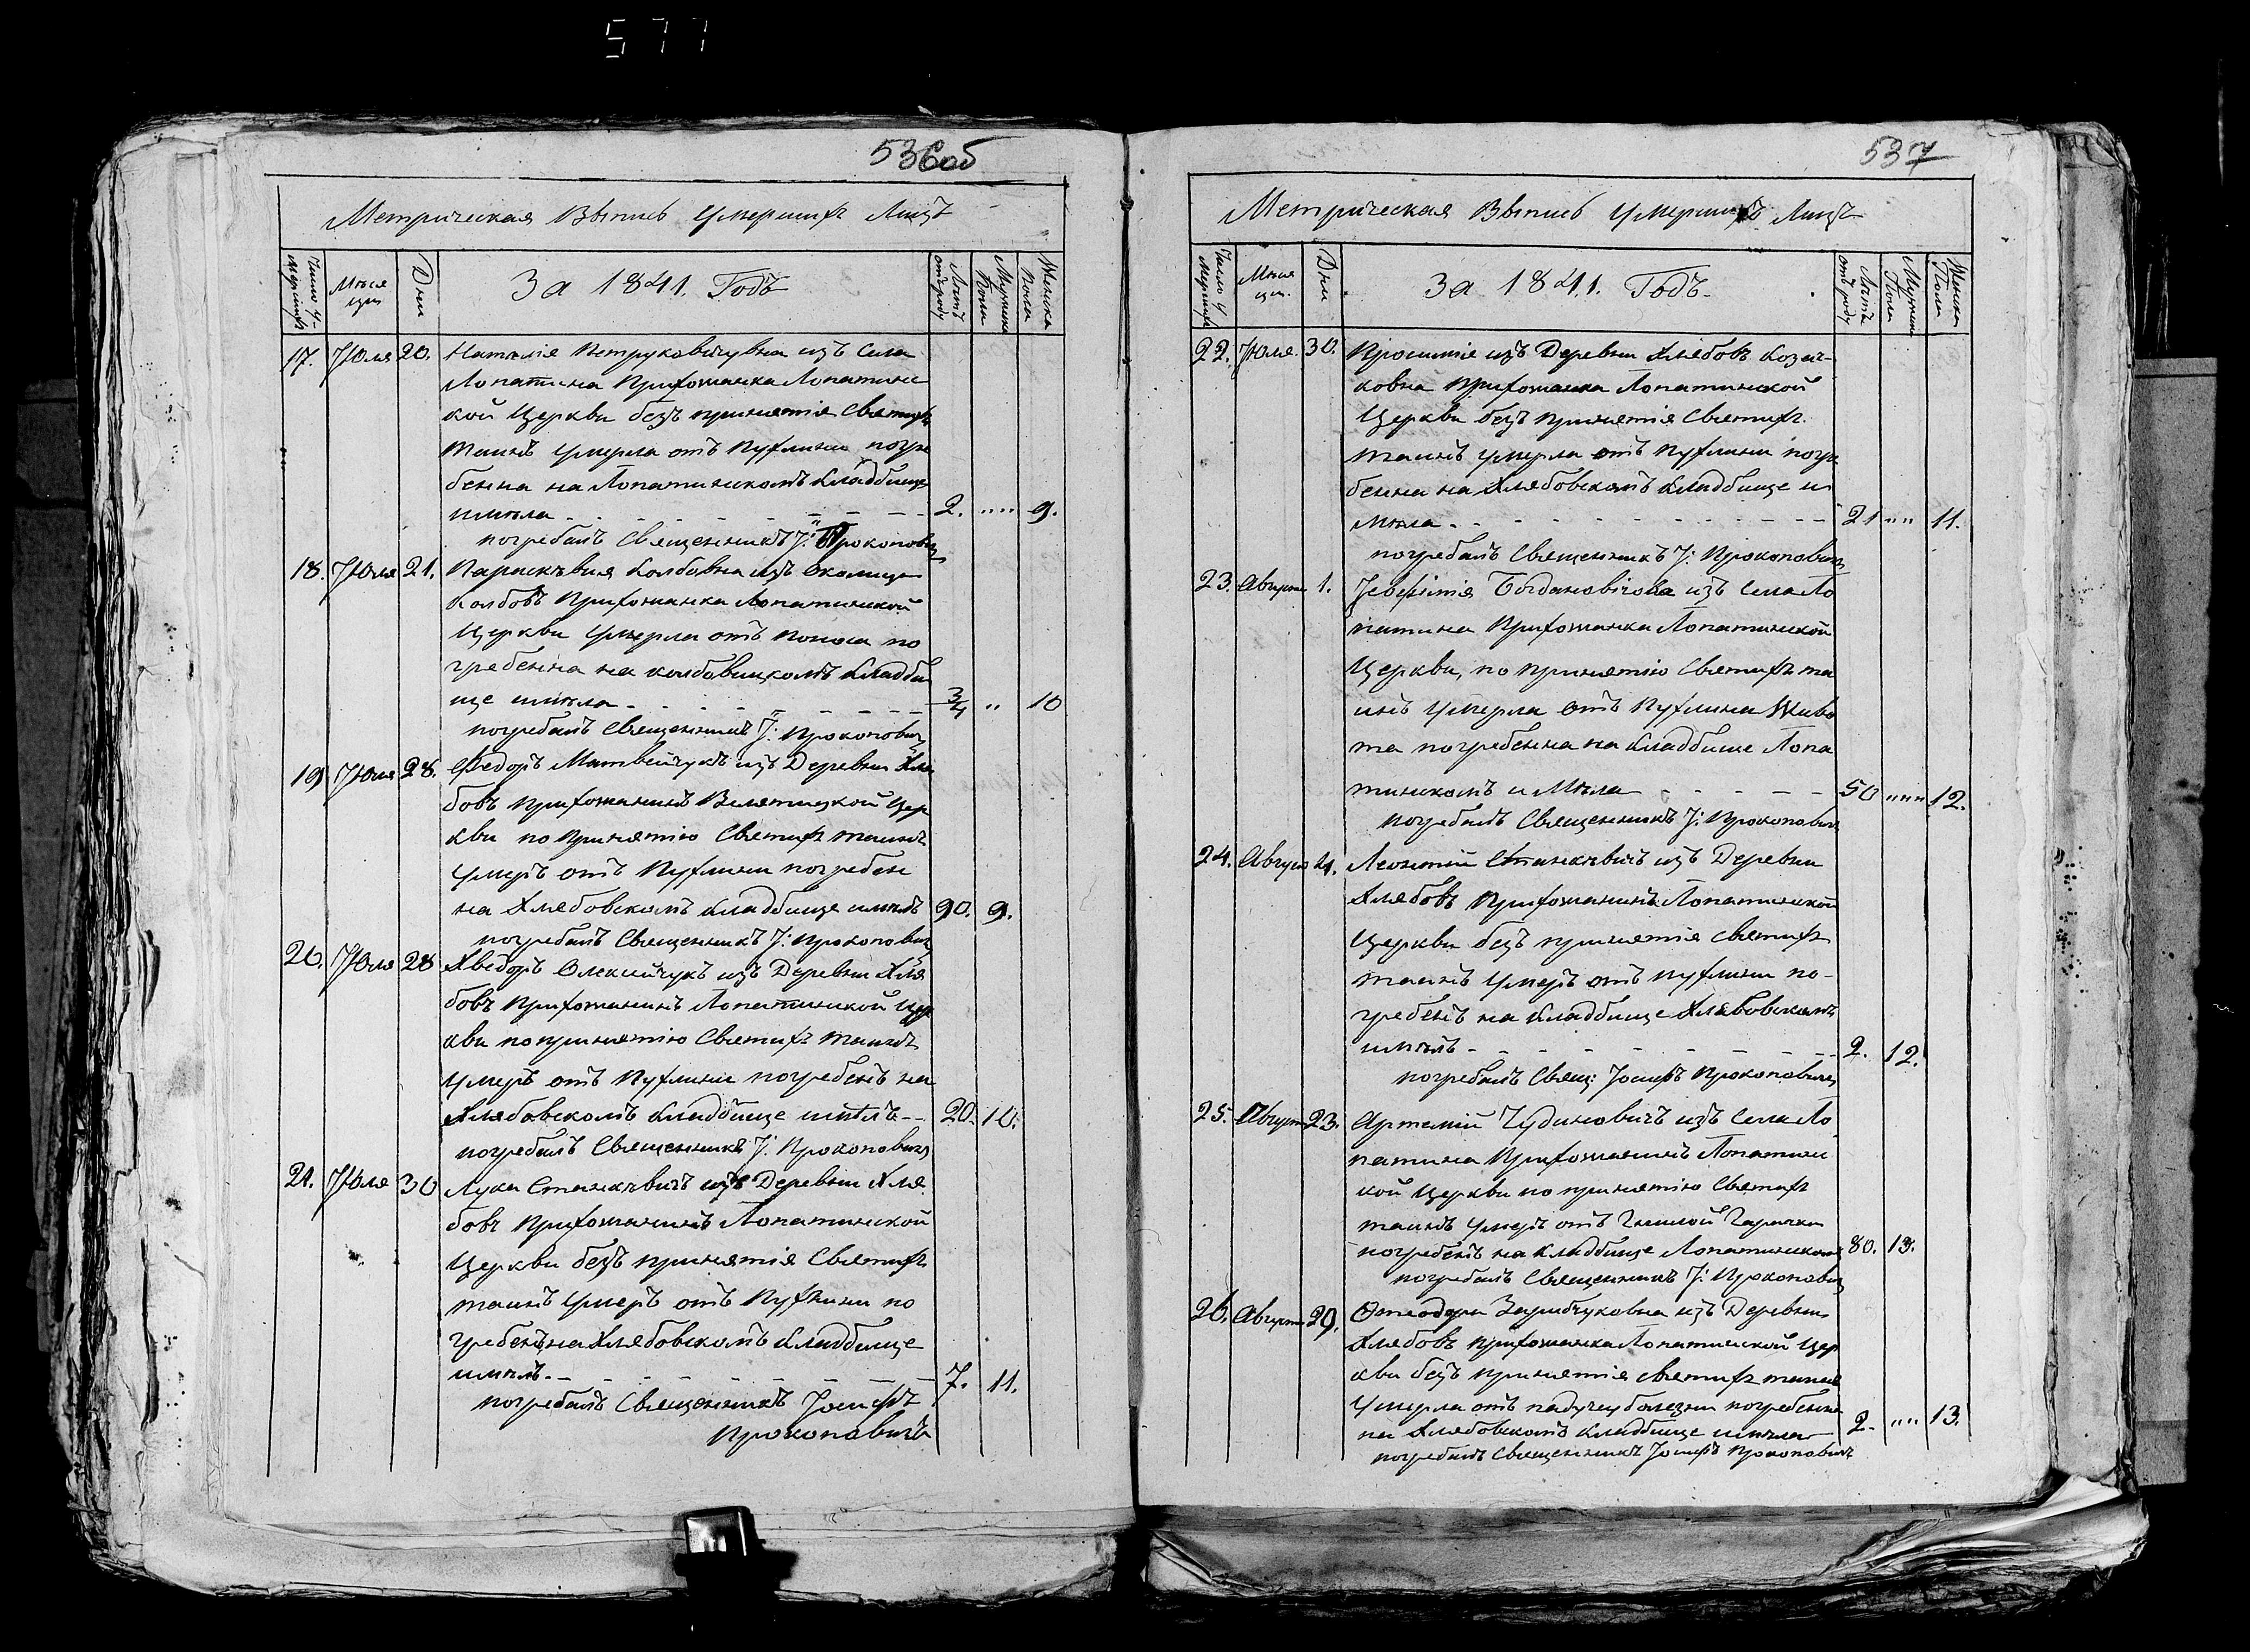 577
536об
Метрическая Выпись Умершихъ Лицъ
Число Умершихъ
Месяцы
Дни
За 1841. Годъ
Летъ отъ роду
Мужеска Пола
Женска Пола
17. Июля 20. Наталія Петруковичувна изъ Села
Лопатина Прихожанка Лопатинс
кой Церкви безъ принятія Святыхъ
Таинъ Умерла отъ Пухлины погре
бенна на Лопатинскомъ Кладбище
имѣла 2. 9.
погребалъ Священникъ І: Прокопович
18. Июля 21. Параскѣвия Колбовна изъ Околицы
Колбовъ Прихожанка Лопатинской
Церкви Умерла отъ поноса по
гребенна на колбовицкомъ Кладби
ще имѣла 3/4 10
погребалъ Священникъ І: Прокопович
19 Июля 28. Федоръ Матвейчукъ изъ Деревни Хля
бовъ прихожанинъ Велятицкой Цер
кви по Принятію Святыхъ таинъ
Умеръ отъ Пухлини погребен
на Хлябовскомъ Кладбище имелъ 90. 9.
погребалъ Священникъ І: Прокопович
20. Июля 28 Хведоръ Олексийчукъ изъ Деревни Хля
бовъ Прихожанинъ Лопатинской Цер
кви по принятію Святыхъ таинъ
Умеръ отъ Пухлини погребенъ на
Хлябовскомъ Кладбище имѣлъ 20. 10.
погребалъ Священникъ І: Прокопович
21. Июля 30 Лука Станкѣвичъ изъ Деревни Хля
бовъ Прихожанинъ Лопатинской
Церкви безъ принятія Святыхъ
таинъ Умеръ отъ Пухлини по
гребенъ на Хлябовскомъ Кладбище
имѣлъ 7. 11.
погребалъ Священникъ Іосифъ
Прокоповичъ
537
Метрическая Выпись Умершихъ Лицъ
Число Умершихъ
Месяцы.
Дни
За 1841. Годъ.
Летъ отъ роду
Мужеска Пола
Женска Пола
22. Июля. 30. из Деревни Хлябовъ Козач-
ковна Прихожанка Лопатинской
Церкви безъ Принятія Святыхъ
таинъ умерла отъ Пухлини погре
бенна на Хлябовскомъ Кладбище и
мѣла 21 11.
погребалъ Священникъ І: Прокопович
23. Августа 1. Богдановичова изъ Села Ло
патина Прихожанка Лопатинской
Церкви, по принятію Святыхъ та
инъ Умерла отъ Пухлини Живо
та погребенна на Кладбище Лопа
тинскомъ и Мѣла 50 12.
погребалъ Священникъ І: Прокопович
24. Августа Леонтій Станкѣвичъ изъ Деревни
Хлябовъ Прихожанинъ Лопатинской
Церкви безъ принятія Святыхъ
таинъ Умеръ отъ пухлини по-
гребенъ на Кладбище Хлябовскомъ
имѣлъ 2. 12.
погребалъ Свящ: Іосифъ Прокопович
25. Августа 23. Артемій Чудиновичъ изъ Села Ло
патина Прихожанинъ Лопатинс
кой Церкви по принятію Святыхъ
таинъ Умеръ отъ Гнилой Гарячки
погребенъ на Кладбище Лопатинскомъ 80. 13.
погребалъ Священникъ І: Прокопович
26. Августа 29. изъ Деревни
Хлябовъ прихожанка Лопатинской Цер
кви безъ принятія святыхъ таинъ
Умерла отъ падучей болезни погребенна
на Хлябовскомъ Кладбище имѣла 2. 13.
погребалъ Священникъ Іосифъ Прокопович